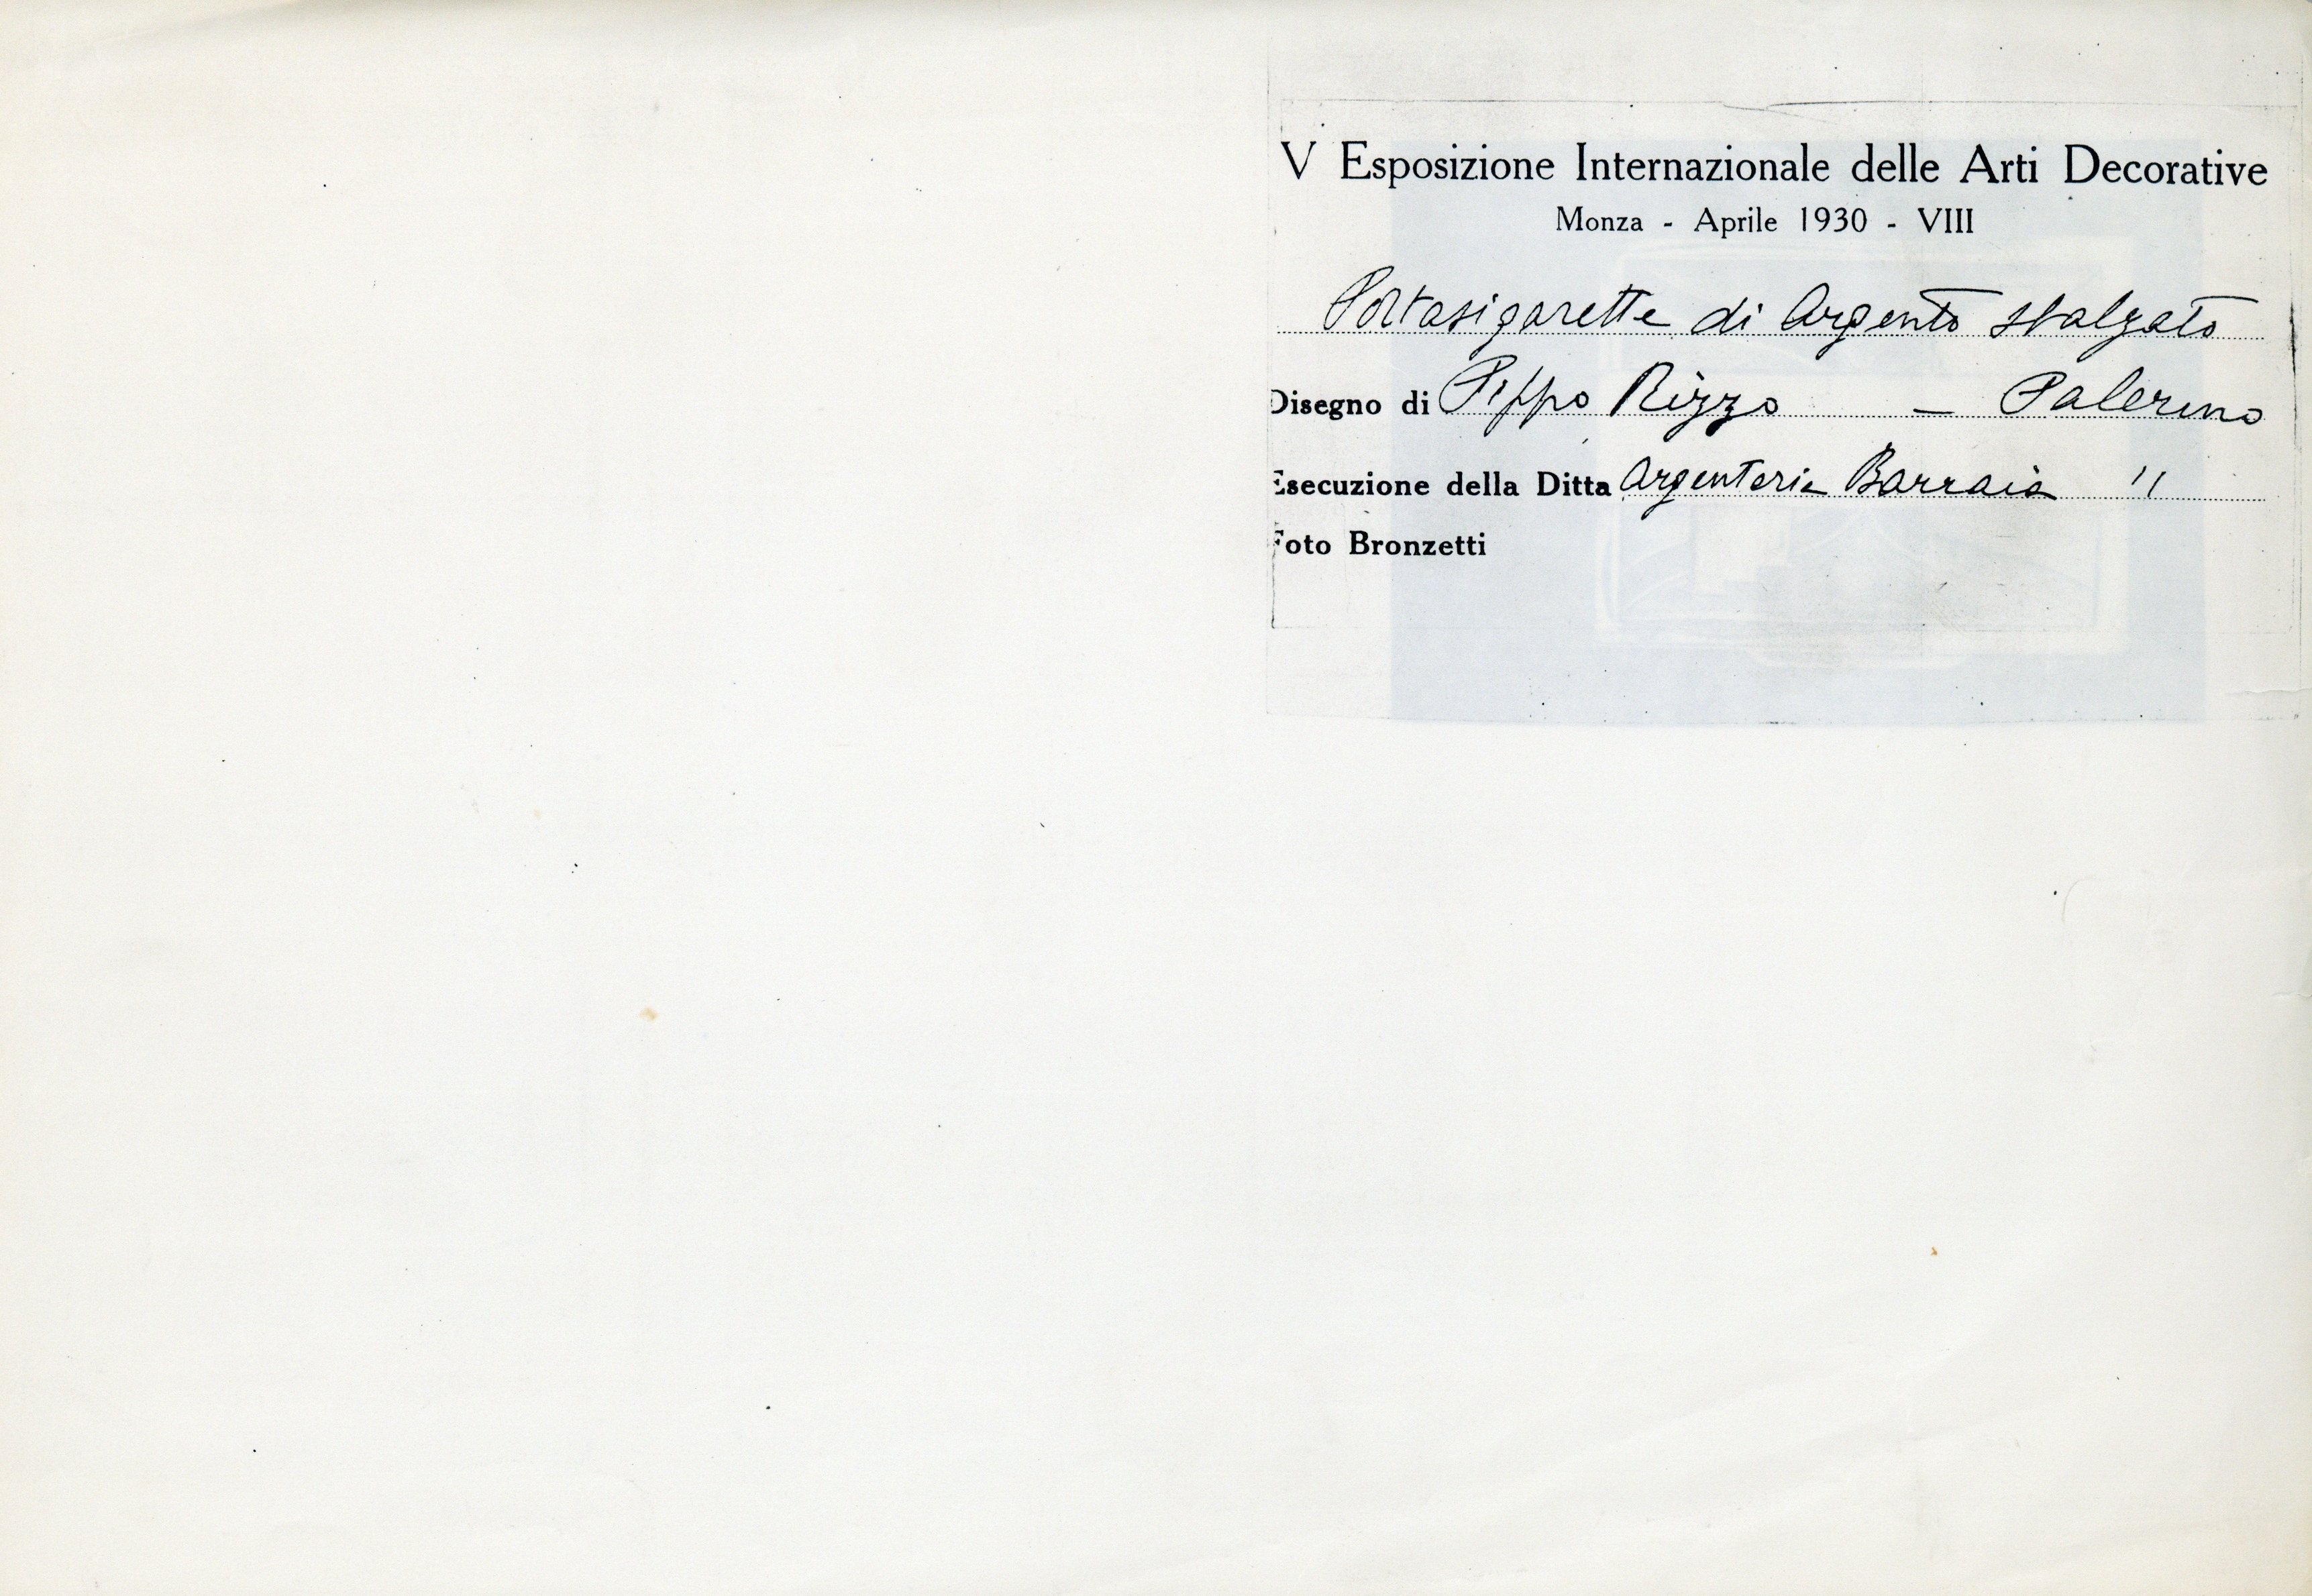 V Esposizione Internazionale delle Arti Decorative
Monza - Aprile 1930 - VIII
Portasigarette di Argento sbalzato
Disegno di Pippo Rizzo — Palermo
Esecuzione della Ditta Argenteria Barraia "
Foto Bronzetti